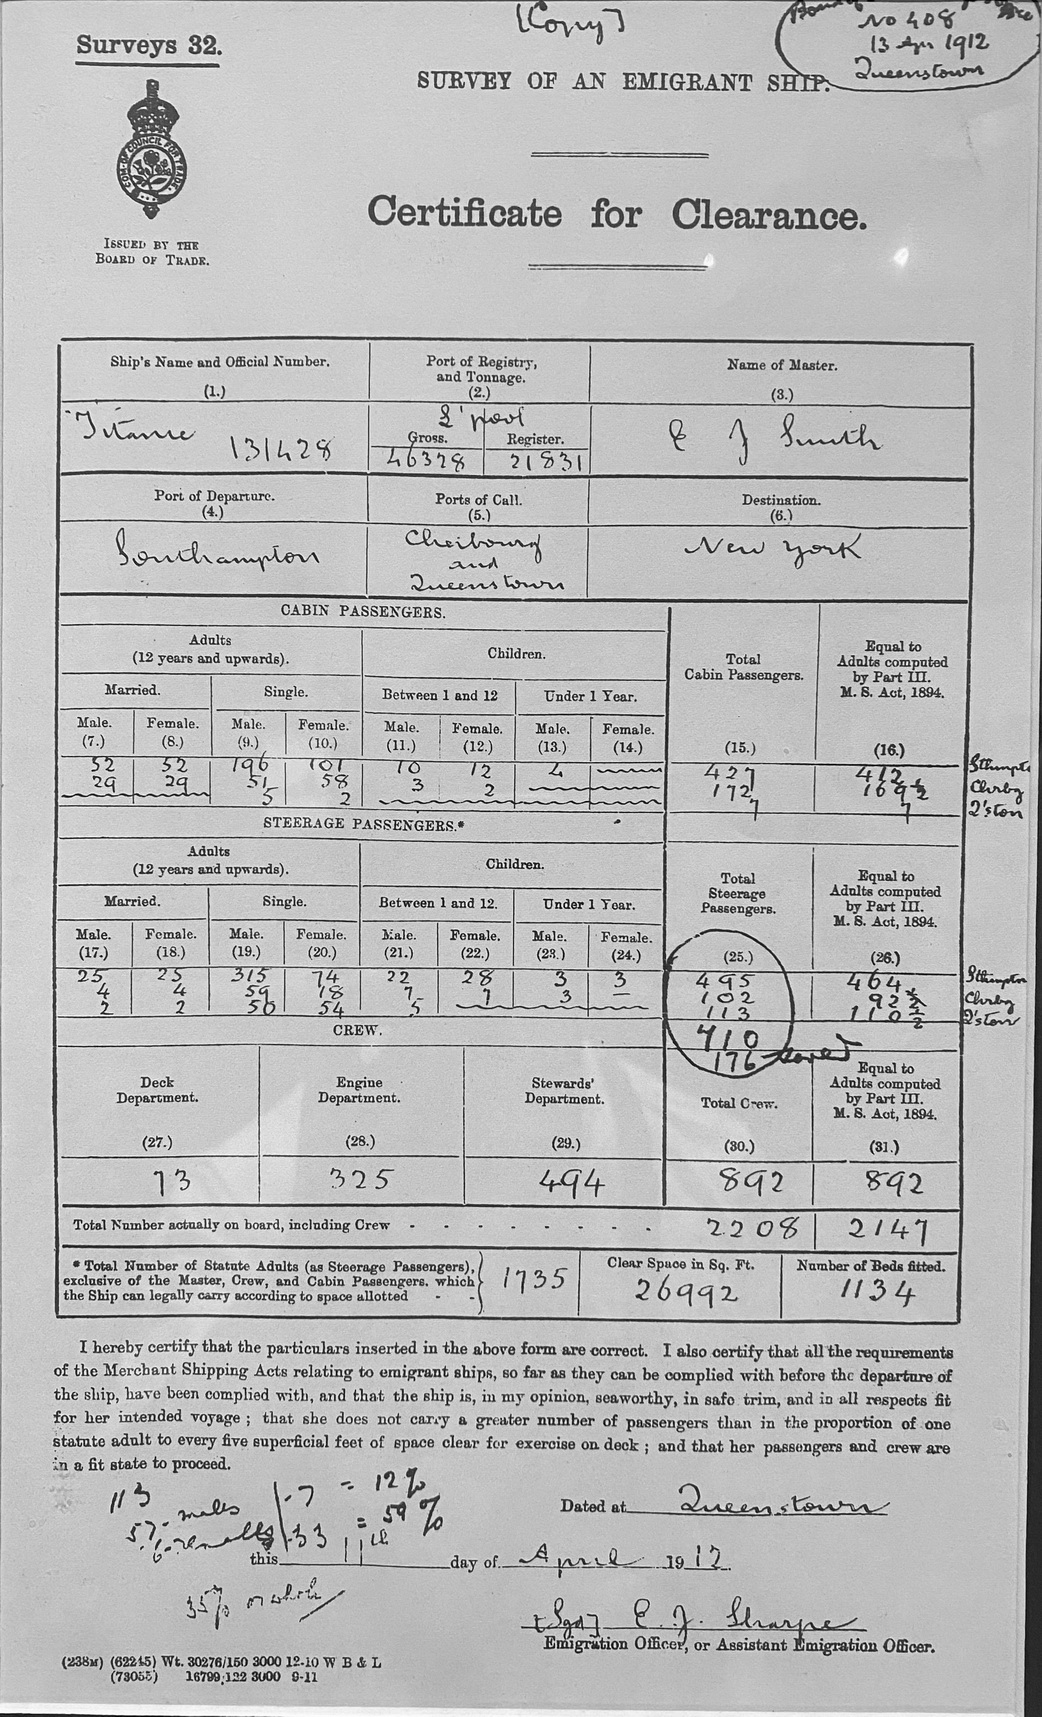 [Copy]
No 408
13 Apr 1912
Queenstown
Surveys 32.
SURVEY OF AN EMIGRANT SHIP.
COM. OF COUNCIL FOR TRADE
Certificate for Clearance.
ISSUED BY THE
BOARD OF TRADE.
Ship's Name and Official Number. (1.)
Port of Registry, and Tonnage. (2.)
Name of Master. (3.)
Titanic 131428
L'pool
Gross. Register.
46328 21831
E J Smith
Port of Departure. (4.)
Ports of Call. (5.)
Destination. (6.)
Southampton
Cherbourg and Queenstown
New York
CABIN PASSENGERS.
Adults (12 years and upwards).
Children.
Total Cabin Passengers.
Equal to Adults computed by Part III. M. S. Act, 1894.
Married. Single. Between 1 and 12 Under 1 Year.
Male. Female. Male. Female. Male. Female. Male. Female.
(7.) (8.) (9.) (10.) (11.) (12.) (13.) (14.) (15.) (16.)
52 52 196 101 10 12 4 427 412 Sthmptn
29 29 51 58 3 2 172 169½ Chrbg
5 2 7 7 Q'ston
STEERAGE PASSENGERS.*
Adults (12 years and upwards).
Children.
Total Steerage Passengers.
Equal to Adults computed by Part III. M. S. Act, 1894.
Married. Single. Between 1 and 12. Under 1 Year.
Male. Female. Male. Female. Male. Female. Male. Female.
(17.) (18.) (19.) (20.) (21.) (22.) (23.) (24.) (25.) (26.)
25 25 315 74 22 28 3 3 495 464 Sthmptn
4 4 59 18 7 7 3 — 102 92½ Chrbg
2 2 50 54 5 113 110½ Q'ston
710
176 saved
CREW.
Deck Department. (27.)
Engine Department. (28.)
Stewards' Department. (29.)
Total Crew. (30.)
Equal to Adults computed by Part III. M. S. Act, 1894. (31.)
73 325 494 892 892
Total Number actually on board, including Crew - - - - - - - - 2208 2147
* Total Number of Statute Adults (as Steerage Passengers), exclusive of the Master, Crew, and Cabin Passengers, which the Ship can legally carry according to space allotted - - 1735
Clear Space in Sq. Ft. 26992
Number of Beds fitted. 1134
I hereby certify that the particulars inserted in the above form are correct. I also certify that all the requirements
of the Merchant Shipping Acts relating to emigrant ships, so far as they can be complied with before the departure of
the ship, have been complied with, and that the ship is, in my opinion, seaworthy, in safe trim, and in all respects fit
for her intended voyage ; that she does not carry a greater number of passengers than in the proportion of one
statute adult to every five superficial feet of space clear for exercise on deck ; and that her passengers and crew are
in a fit state to proceed.
113
57 - males - 7 = 12%
females - 33 = 59%
35% on whole
Dated at Queenstown
this 11th day of April 1912.
[Sgd] E. J. Sharpe
Emigration Officer, or Assistant Emigration Officer.
(238M) (62245) Wt. 30276/150 3000 12-10 W B & L
(73055) 16799/122 3000 9-11